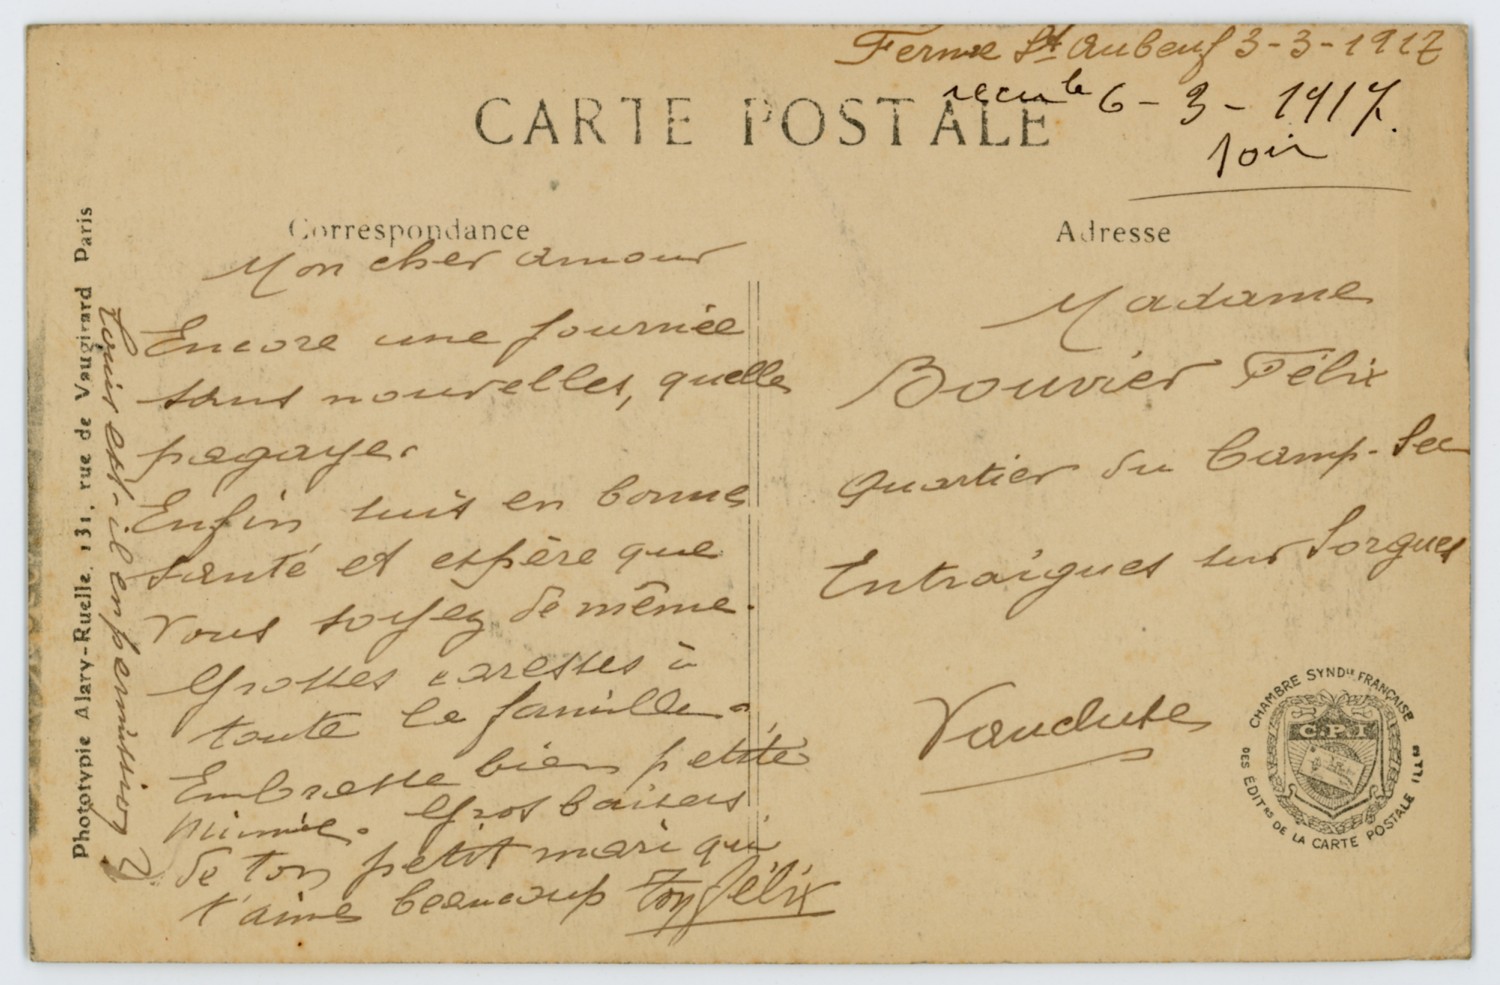 Ferme St Aubeuf 3-3-1917
recu le 6-3-1917.
soir
CARTE POSTALE
Correspondance
Mon cher amour
Encore une journée
sans nouvelles, quelle
pagaye.
Enfin suis en bonne
santé et espère que
vous soyez de même.
Grosses caresses à
toute la famille.
Embrasse bien petite
Mimie. Gros baisers
de ton petit mari qui
t'aime beaucoup Ton Félix
Louis est-il en permission ?
Phototypie Alary-Ruelle, 131, rue de Vaugirard Paris
Adresse
Madame
Bouvier Félix
Quartier du Camp-Sec
Entraigues sur Sorgues
Vaucluse
CHAMBRE SYNDle FRANÇAISE
C.P.I
DES EDITrs DE LA CARTE POSTALE ILLtée